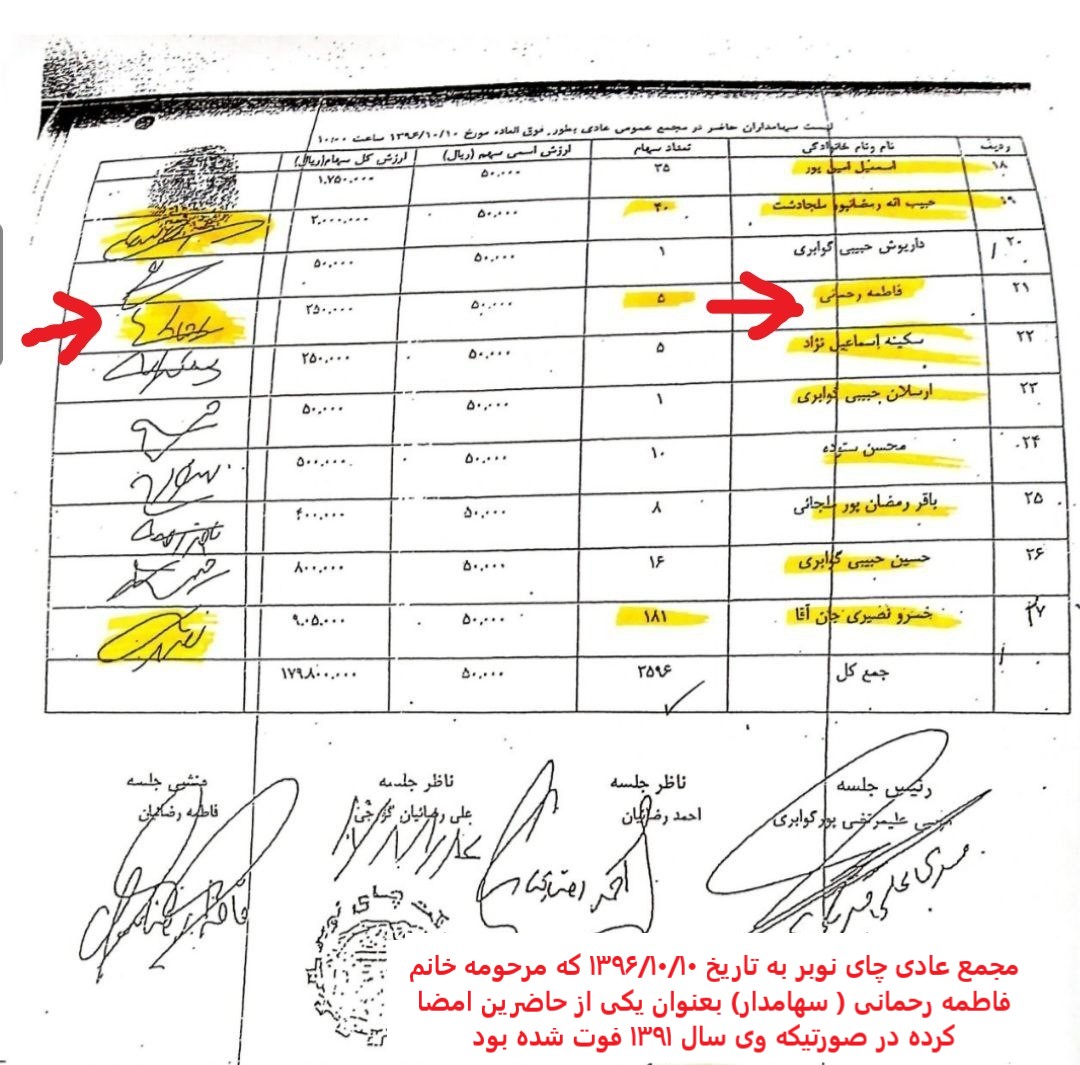 لیست سهامداران حاضر در مجمع عمومی عادی بطور فوق العاده مورخ ۱۳۹۶/۱۰/۱۰ ساعت ۱۰:۰۰
ردیف نام ونام خانوادگی تعداد سهام ارزش اسمی سهم (ریال) ارزش کل سهام(ریال)
۱۸ اسمعیل امین پور ۳۵ ۵۰،۰۰۰ ۱،۷۵۰،۰۰۰
۱۹ حبیب اله رمضانپور ملجادشت ۴۰ ۵۰،۰۰۰ ۲،۰۰۰،۰۰۰
۲۰ داریوش حبیبی گوابری ۱ ۵۰،۰۰۰ ۵۰،۰۰۰
۲۱ فاطمه رحمانی ۵ ۵۰،۰۰۰ ۲۵۰،۰۰۰
۲۲ سکینه اسماعیل نژاد ۵ ۵۰،۰۰۰ ۲۵۰،۰۰۰
۲۳ ارسلان حبیبی گوابری ۱ ۵۰،۰۰۰ ۵۰،۰۰۰
۲۴ محسن ستوده ۱۰ ۵۰،۰۰۰ ۵۰۰،۰۰۰
۲۵ باقر رمضان پور ملجائی ۸ ۵۰،۰۰۰ ۴۰۰،۰۰۰
۲۶ حسین حبیبی گوابری ۱۶ ۵۰،۰۰۰ ۸۰۰،۰۰۰
۲۷ خسرو نصیری جان آقا ۱۸۱ ۵۰،۰۰۰ ۹،۰۵۰،۰۰۰
جمع کل ۳۵۹۶ ۵۰،۰۰۰ ۱۷۹،۸۰۰،۰۰۰
رئیس جلسه ناظر جلسه ناظر جلسه منشی جلسه
علیمرتضی پور گوابری احمد رضائیان علی رضائیان فاطمه رضائیان
احمد رضائیان
چای نوبر
مجمع عادی چای نوبر به تاریخ ۱۳۹۶/۱۰/۱۰ که مرحومه خانم
فاطمه رحمانی ( سهامدار) بعنوان یکی از حاضرین امضا
کرده در صورتیکه وی سال ۱۳۹۱ فوت شده بود